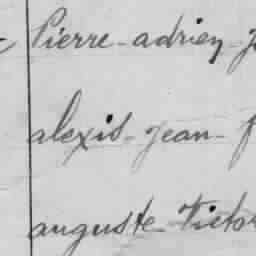 Pierre-adrien-
alexis-Jean-
auguste-Victor